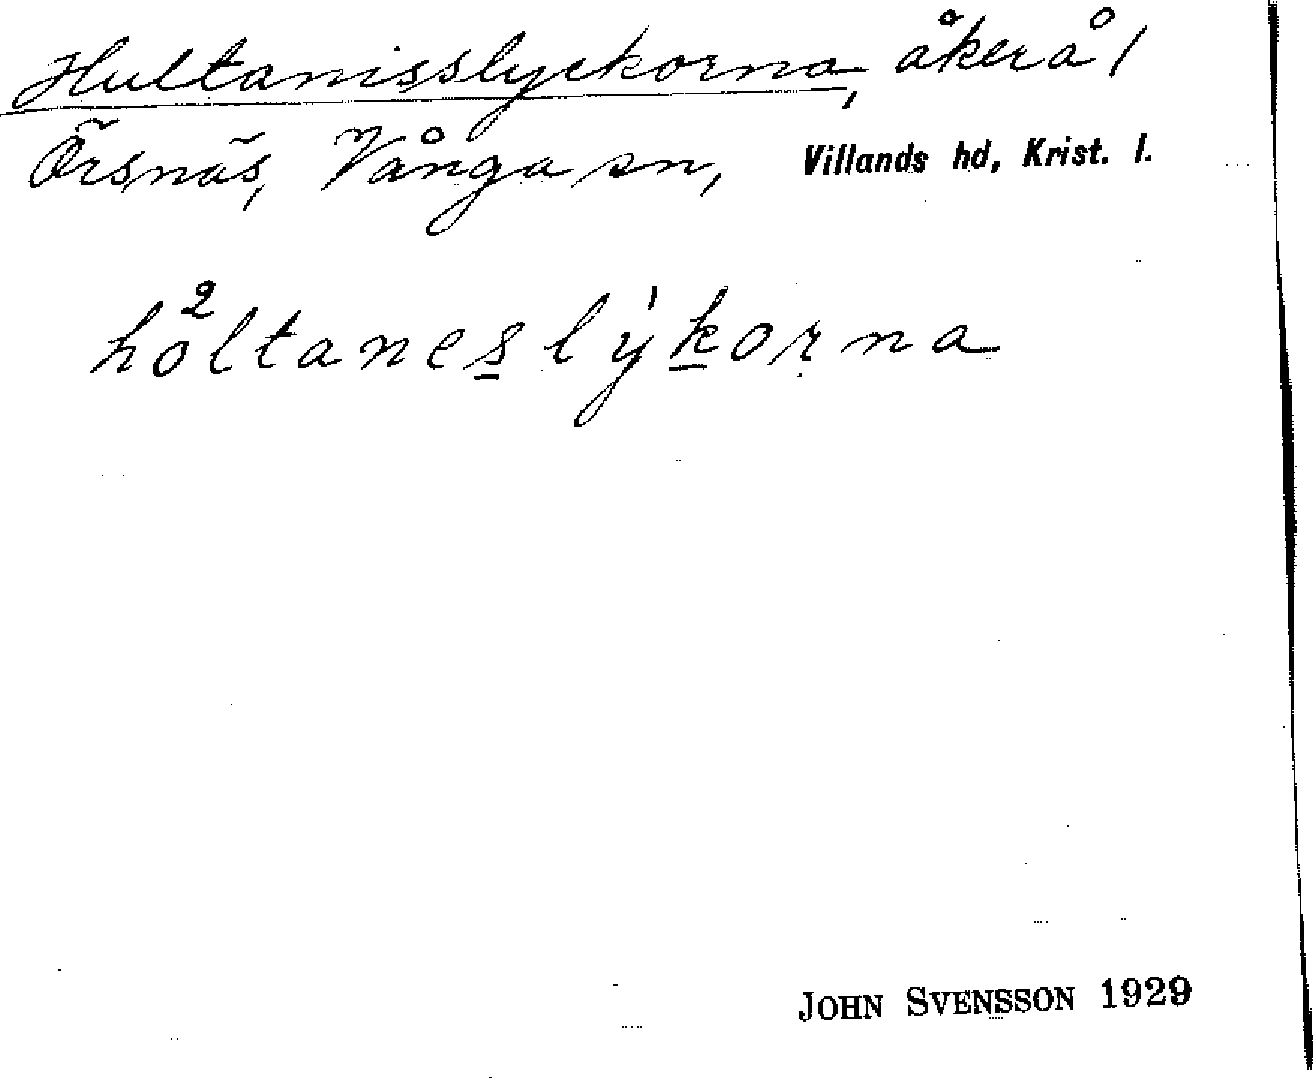 Hultanisslyckorna, åkerå/
Örsnäs, Vånga sn, Villands hd, Krist. l.
ho²ltaneslýkorna
JOHN SVENSSON 1929